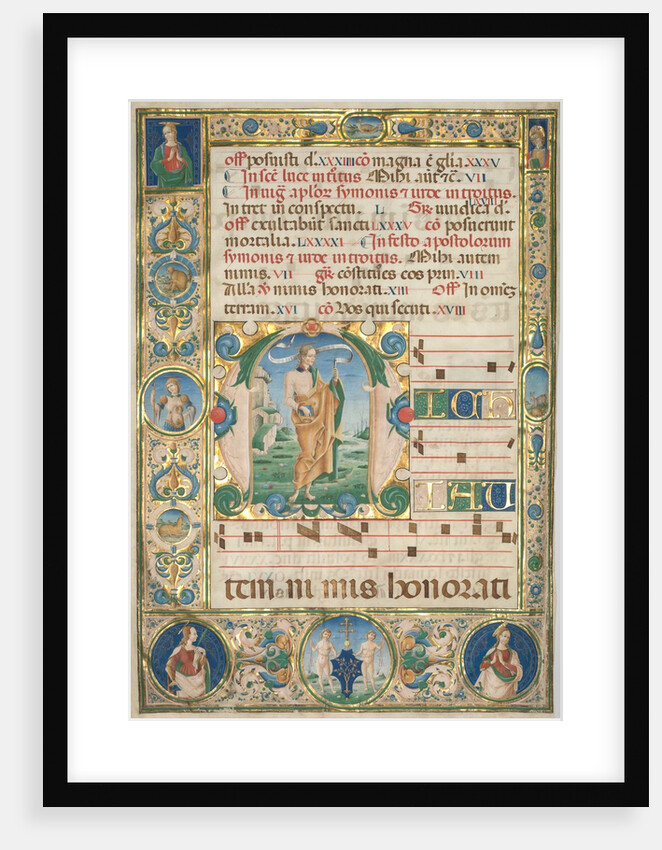 off posuisti d. XXXIIII cō magna ē glīa. XXXV
In scē luce intitus Mihi aūt ē. VII
In uig aplor symonis ⁊ iude introitus.
Intret in conspectu. L Gr uindica d. LXVII
off exultabūt sancti LXXXV cō posuerunt
mortalia. LXXXXI In festo apostolorum
symonis ⁊ iude introitus. Mihi autem
nimis. VII gr cōstitues eos prin. VIII
Alla ꝟ nimis honorati. XIII Off In omēz
terram. XVI cō Vos qui secuti. XVIII
M
ICH
I AU
tem. ni mis honorati